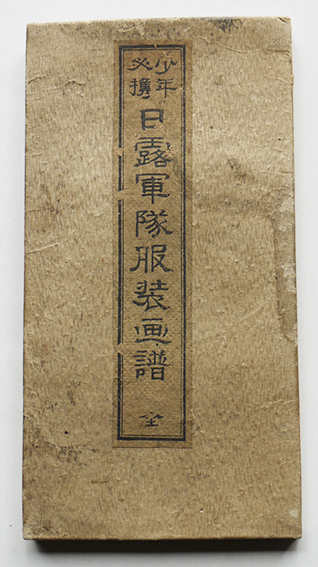 少年
必携
日露軍隊服装画譜
全